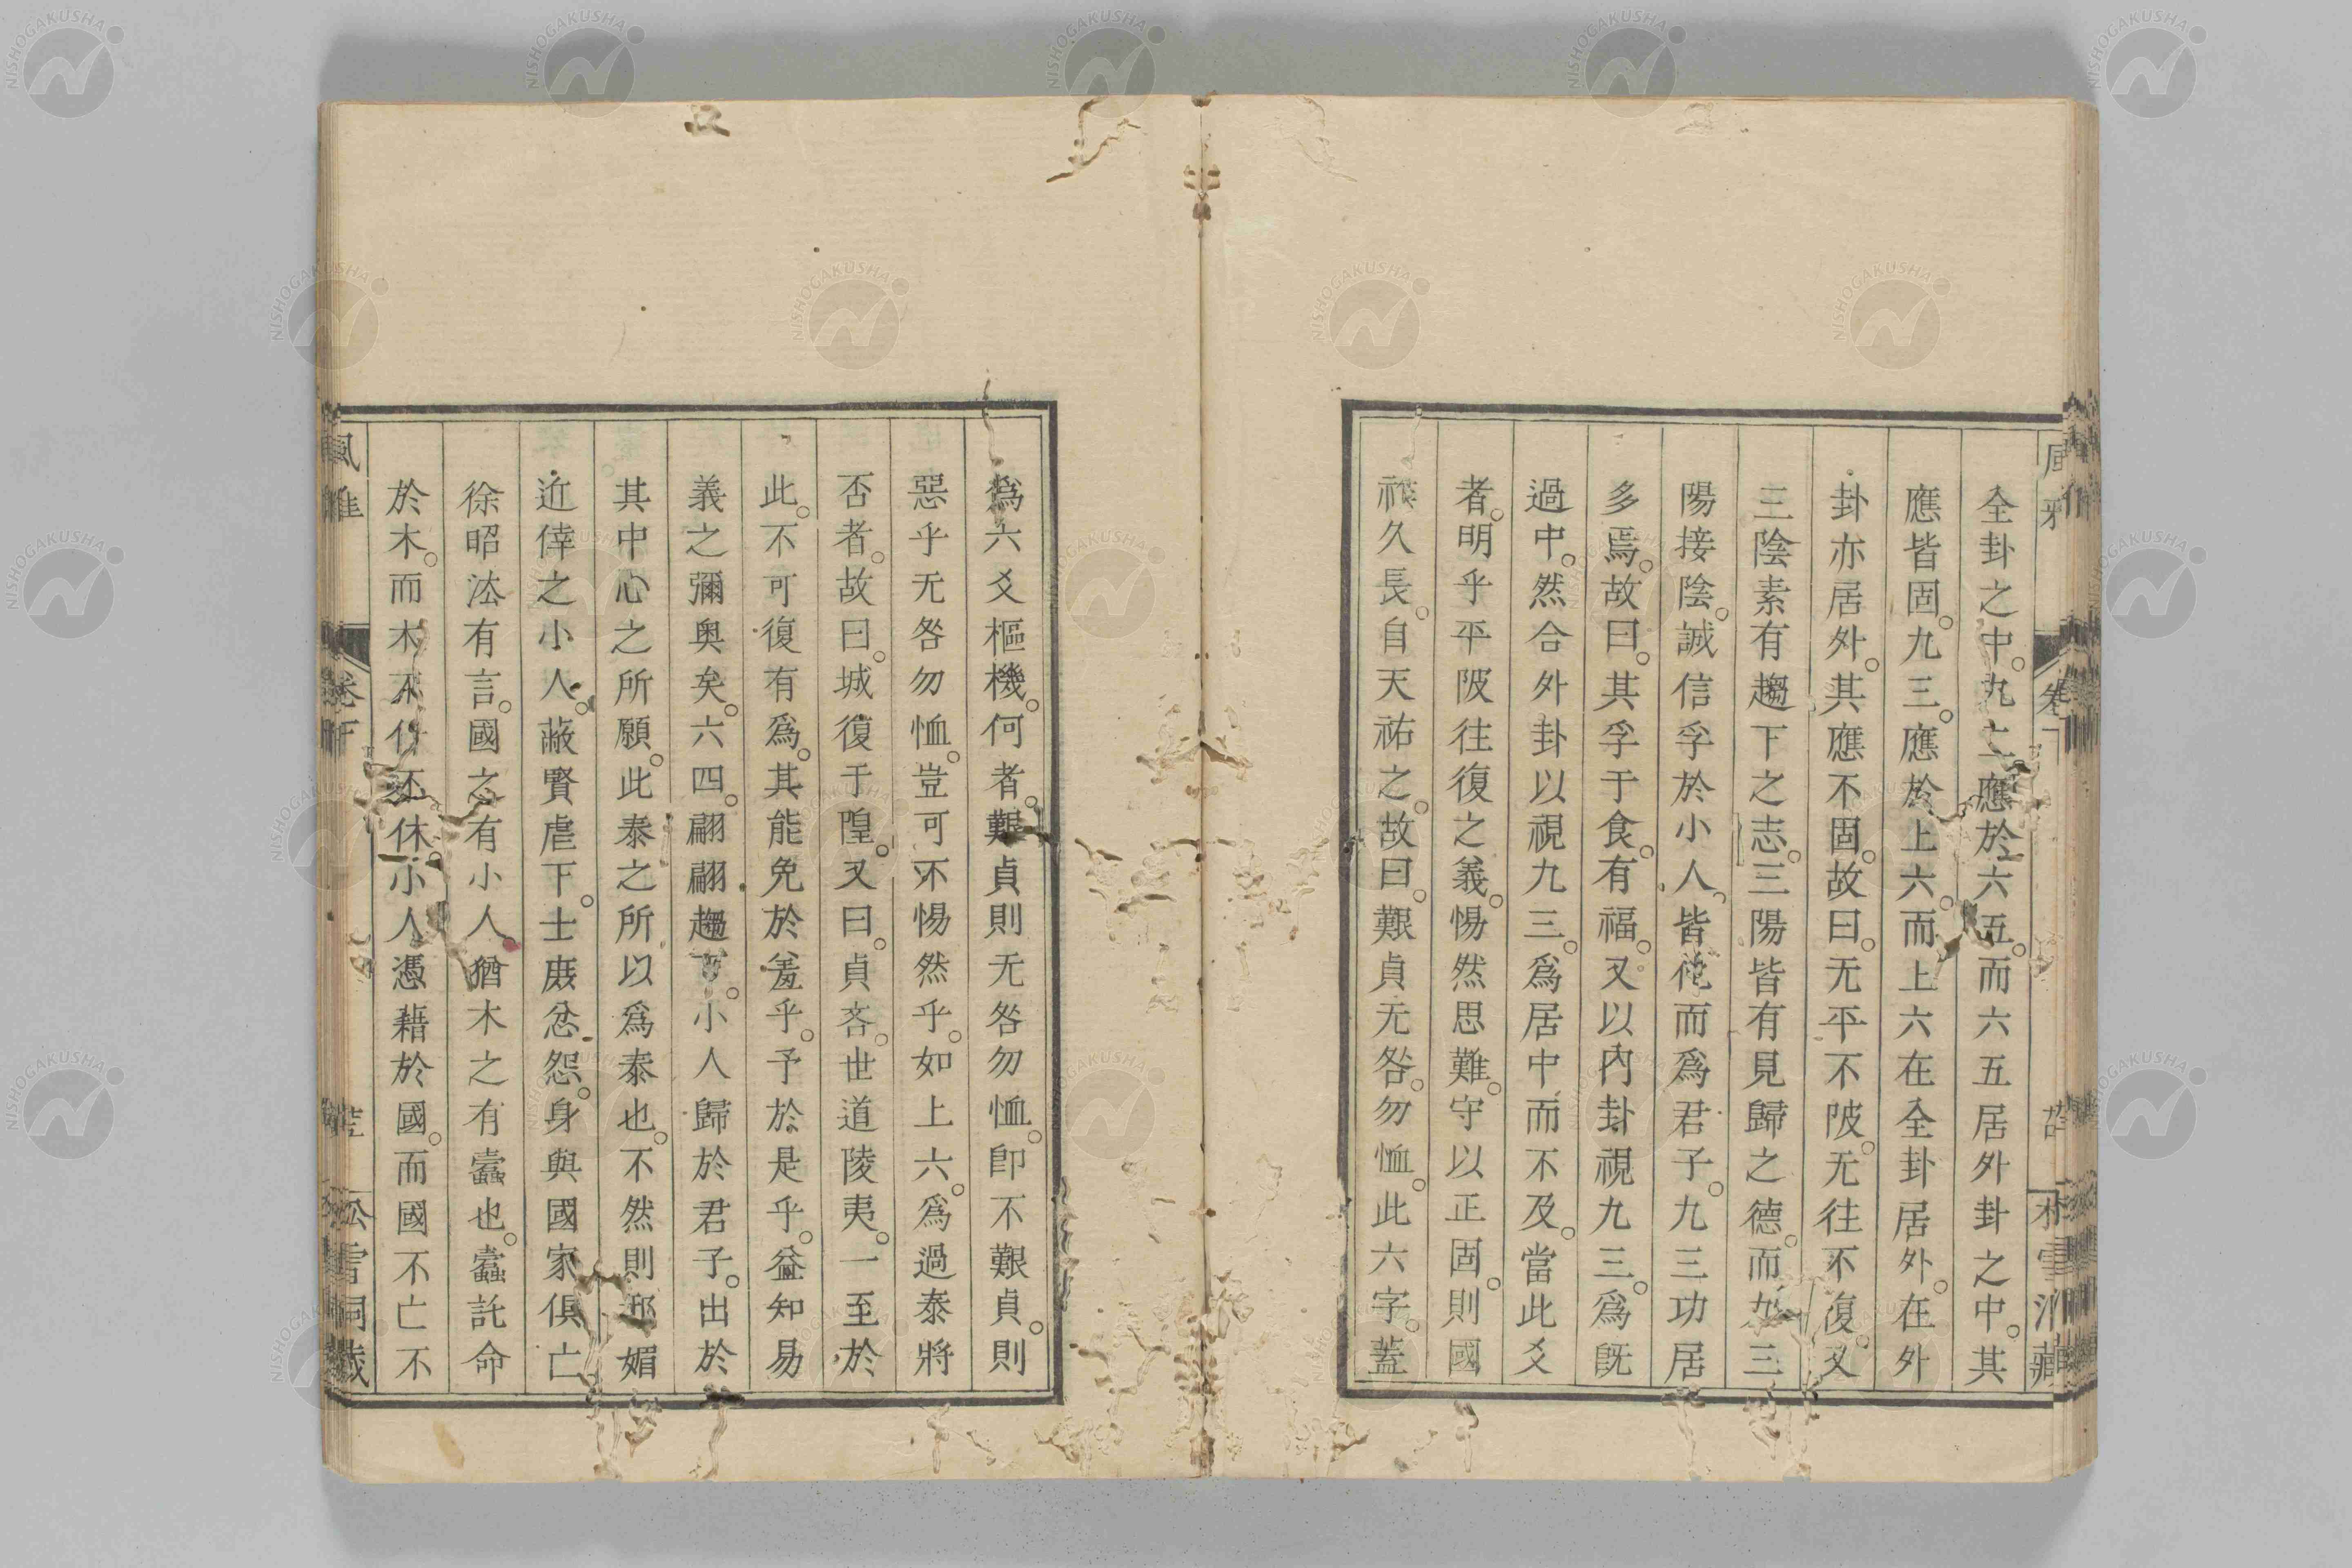 全卦之中。九二應於六五。而六五居外卦之中。其
應皆固。九三。應於上六。而上六在全卦居外。在外
卦亦居外。其應不固。故曰。无平不陂。无往不復。又
三陰素有趨下之志。三陽皆有見歸之德。而九三
陽接陰。誠信孚於小人。皆化而爲君子。九三功居
多焉。故曰。其孚于食。有福。又以內卦視九三。爲旣
過中。然合外卦以視九三。爲居中而不及。當此爻
者。明乎平陂往復之義。惕然思難。守以正固。則國
祚久長。自天祐之。故曰。艱貞无咎。勿恤。此六字。蓋
爲六爻樞機。何者。艱貞則无咎勿恤。卽不艱貞。則
惡乎无咎勿恤。豈可不惕然乎。如上六。爲過泰將
否者。故曰。城復于隍。又曰。貞吝。世道陵夷。一至於
此。不可復有爲。其能免於羞乎。予於是乎。益知易
義之彌奧矣。六四。翩翩趨下。小人歸於君子。出於
其中心之所願。此泰之所以爲泰也。不然則邪媚
近倖之小人。蔽賢虐下。士庶忿怨。身與國家俱亡
徐昭法有言。國之有小人。猶木之有蠹也。蠹託命
於木。而木不仆不休。小人憑藉於國。而國不亡不
風雅 卷下 松雪洞藏
NISHOGAKUSHA